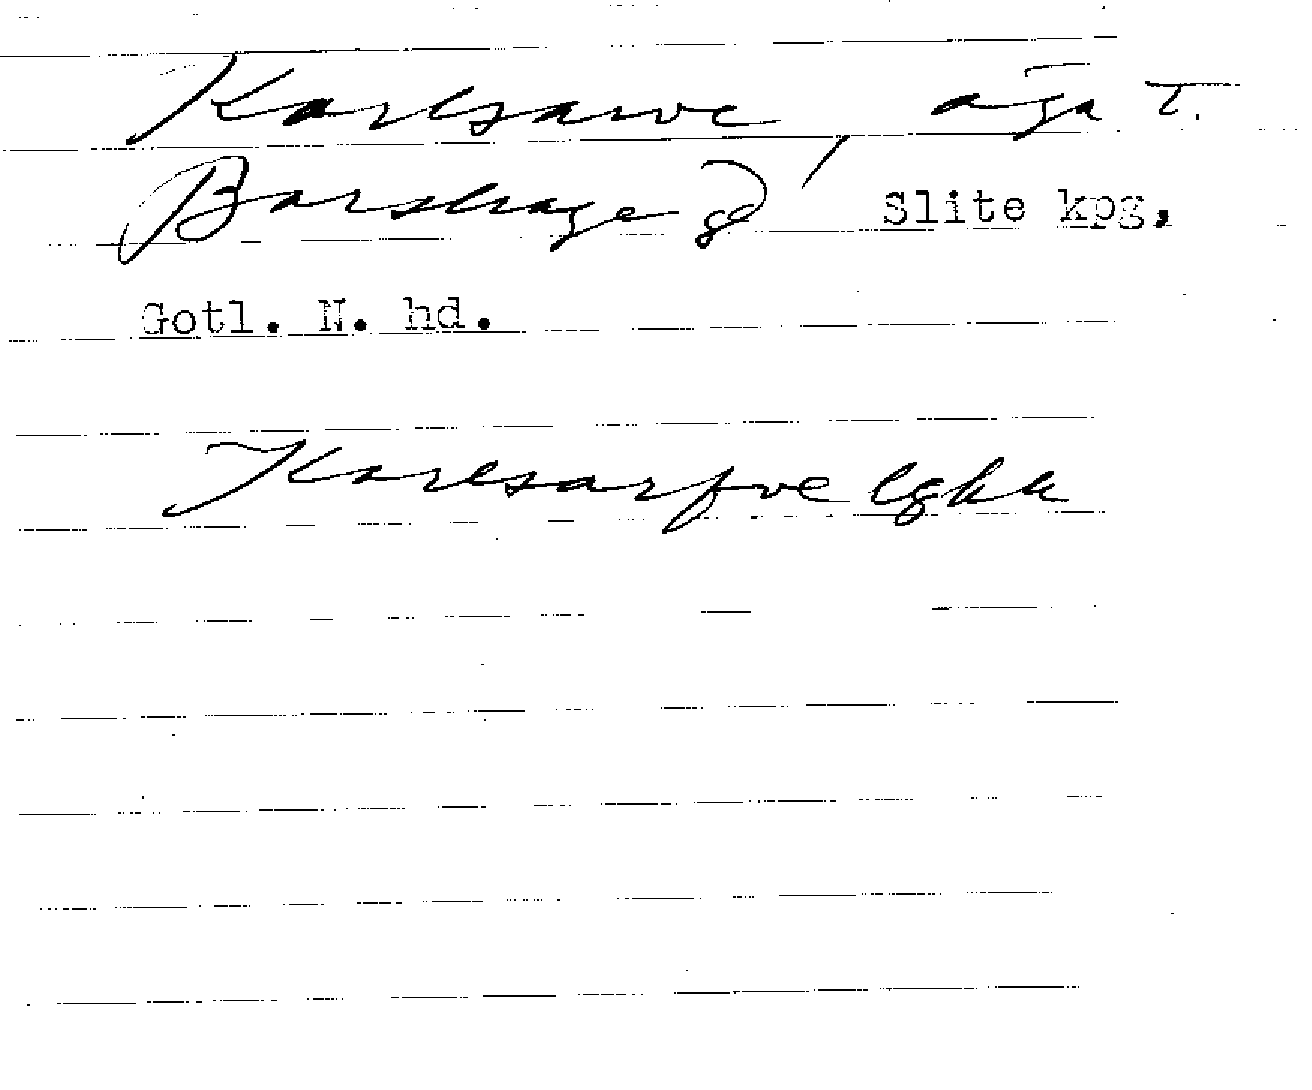 Karlsarve, äga t.
Barshage gd Slite kpg,
Gotl. N. hd.
Karlsarfve lghh